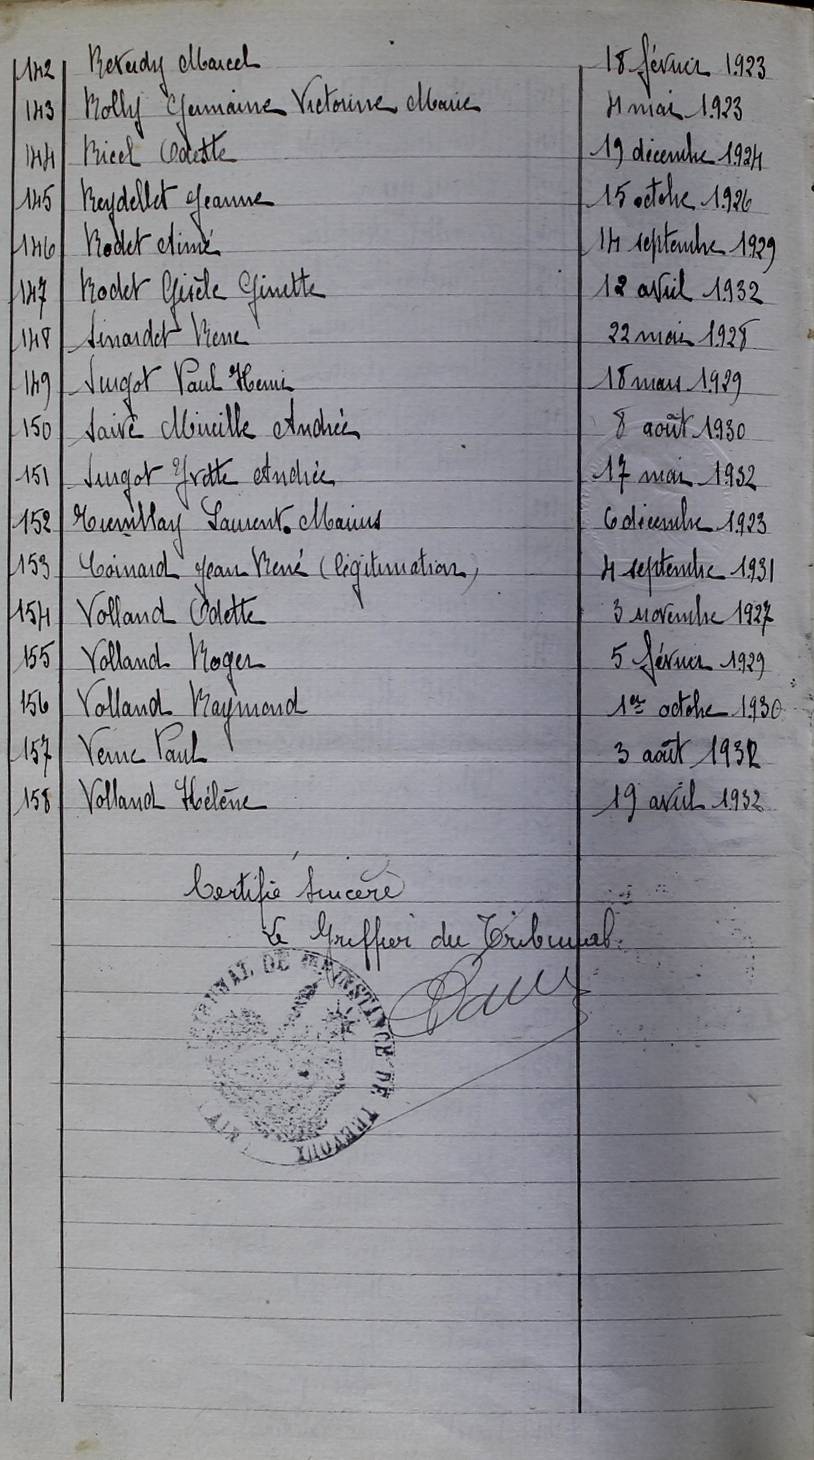 142 Reverdy Marcel 18 février 1923
143 Rolly Germaine Victorine Marie 4 mai 1923
144 Ricol Odette 19 décembre 1924
145 Reydellet Jeanne 15 octobre 1926
146 Rodet Aimé 14 septembre 1929
147 Rodet Gisèle Ginette 12 avril 1932
148 Sinardet Rene 22 mai 1928
149 Surgot Paul Henri 18 mars 1929
150 Saive Mireille Andrée 8 août 1930
151 Surgot Yvette Andrée 17 mai 1932
152 Tremblay Laurent Marius 6 décembre 1923
153 Coinard Jean René (légitimation) 4 septembre 1931
154 Volland Odette 3 novembre 1927
155 Volland Roger 5 février 1929
156 Volland Raymond 1er octobre 1930
157 Verne Paul 3 août 1932
158 Volland Hélène 19 avril 1932
Certifié sincère
Le Greffier du Tribunal.
TRIBUNAL DE 1RE INSTANCE DE TREVOUX
(AIN)